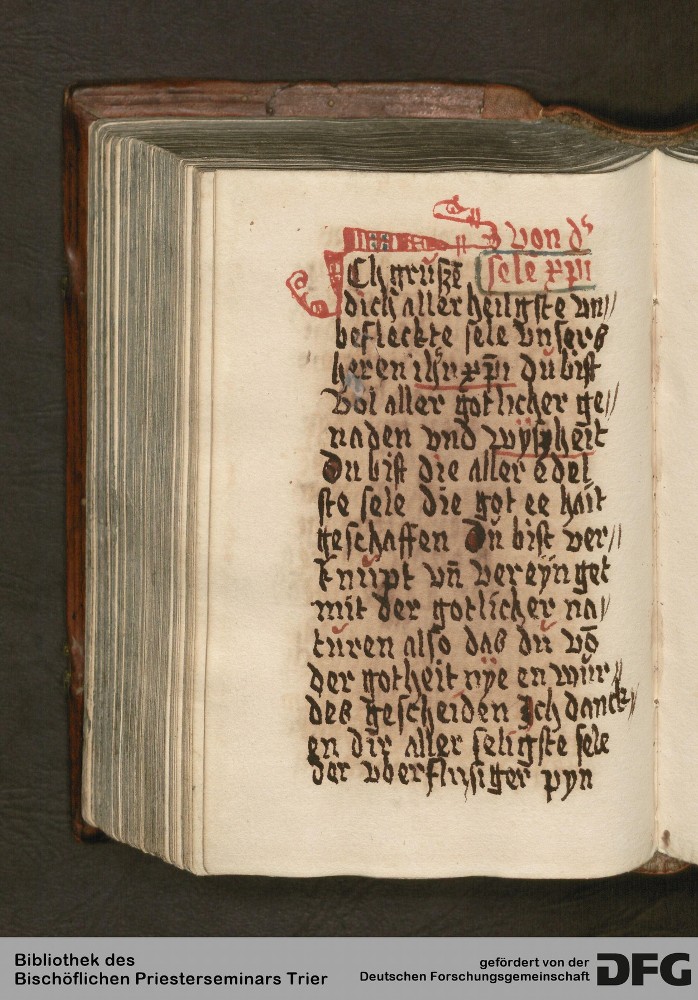 von d'
sele xp̄i
Ich grüsze
dich aller heiligste vn//
befleckte sele vnsers
heren ihū xp̄i du bist
vol aller gotlicher ge//
naden vnd wÿsheit
Du bist die aller edel
ste sele die got ee hait
geschaffen Du bist ver//
knüpt vn̄ vereÿnget
mit der gotlicher na/
türen also das du vō
der gotheit nÿe en wur//
des gescheiden Ich danck/
en dir aller seligste sele
der vberflusiger pyn
Bibliothek des
Bischöflichen Priesterseminars Trier
gefördert von der
Deutschen Forschungsgemeinschaft
DFG